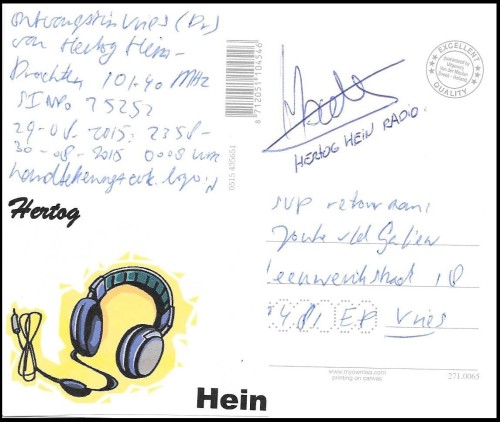 ontvangst in Vries (Dr)
van Hertog Hein -
Drachten 101.40 MHz
SINPO 25252
29-08-2015: 2358-
30-08-2015 0008 uur
Hertog
Hein
8712051104546
0515 435651
EXCELLENT
QUALITY
HERTOG HEIN RADIO.
SVP retour aan:
Jouke vd Galiën
Leeuwerikstraat 18
9481 EP Vries
printing on canvas
271.0065